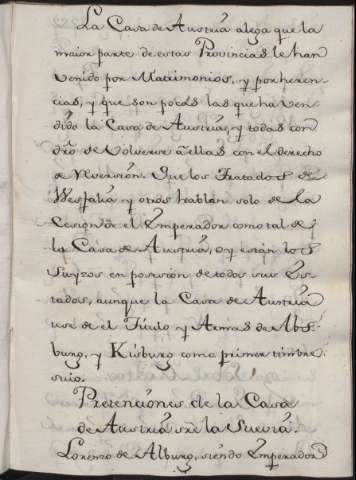 La Casa de Austria alega que la
maior parte de estas Provincias le han
venido por Matrimonios, y por heren
cias, y que son pocas las que ha ven
dido la Casa de Austria, y todas con
dro de volverse a ellas con el derecho
de Reversión. Que los Tratados de
Wesfalia y otros hablan solo de la
Cesion de el Emperador como tal de
la Casa de Austria, oy están los
Suyzos en posesión de todos sus Es-
tados, aunque la Casa de Austria
use de el Titulo y Armas de Abs-
burg, y Kiburg como primer timbre
suio.
Pretenciones de la Casa
de Austria sre la Suevia.
Lorenzo de Alburg, siendo Emperador